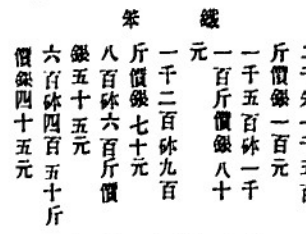 斤價銀一百元
一千五百砵一千
一百斤價銀八十
元
鐵
一千二百砵九百
斤價銀七十元
笨
八百砵六百斤價
銀五十五元
六百砵四百五十斤
價銀四十五元